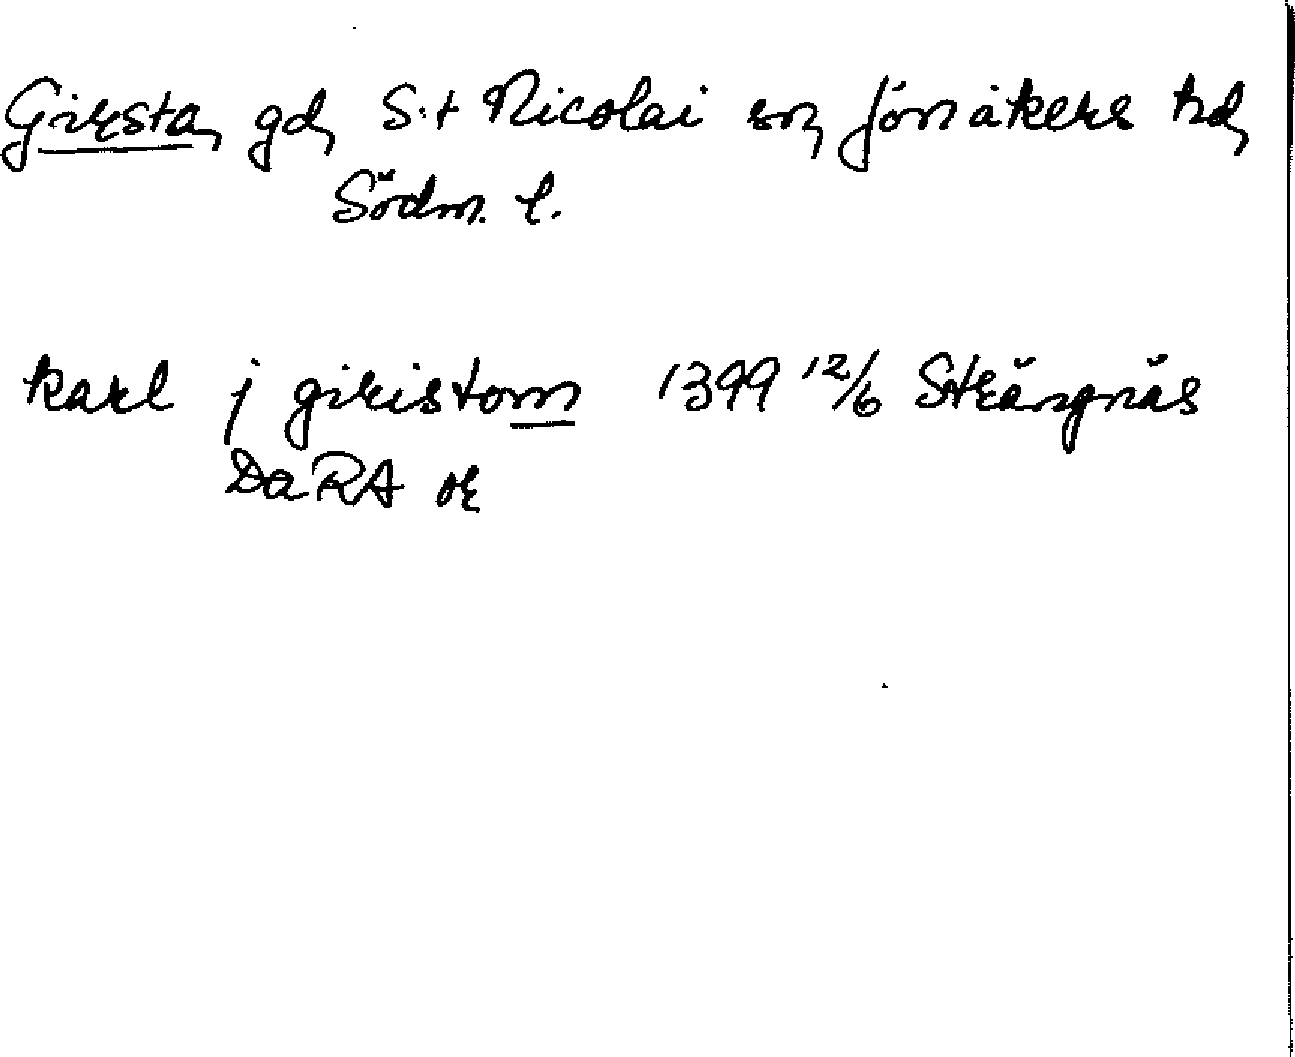 Girsta, gd, S:t Nicolai sn, Jönåkers hd,
Södm. l.
karl j giristom 1399 12/6 Strängnäs
Da RA or